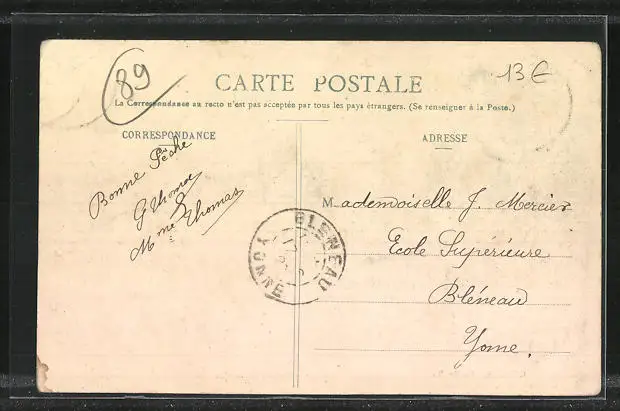 89
13 €
CARTE POSTALE
La Correspondance au recto n'est pas acceptée par tous les pays étrangers. (Se renseigner à la Poste.)
CORRESPONDANCE
Bonne Pêche
G Thomas
Mme Thomas
ADRESSE
Mademoiselle J. Mercier
Ecole Supérieure
Bléneau
Yonne.
BLENEAU
YONNE